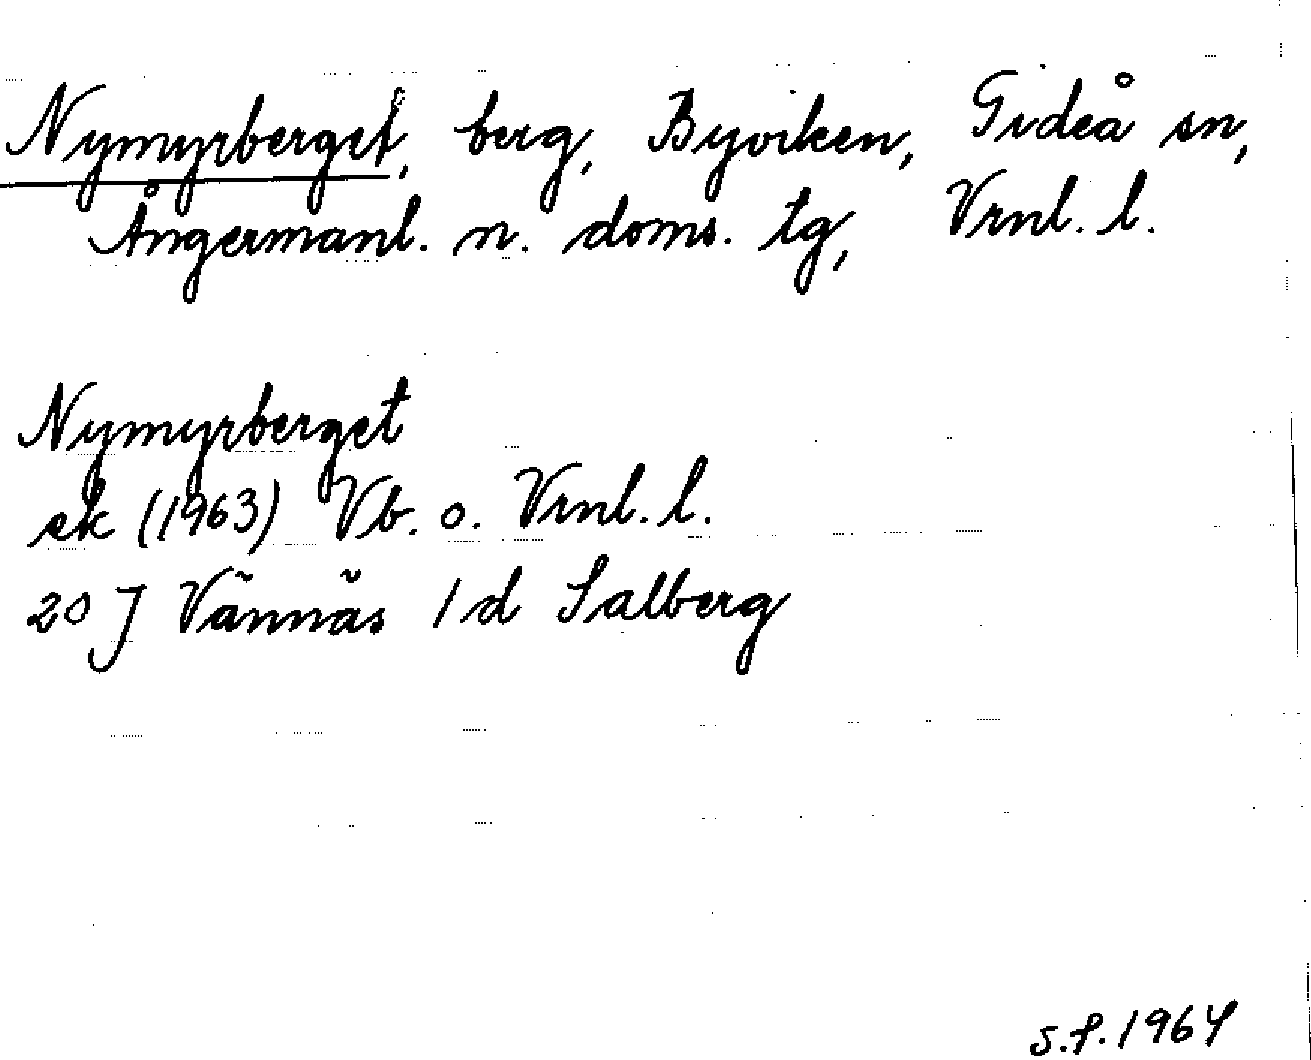 Nymyrberget, berg, Byviken, Gideå sn,
Ångermanl. n. doms. tg, Vrnl. l.
Nymyrberget
ek (1963) Vb. o. Vrnl. l.
20 J Vännäs 1 d Salberg
S.f. 1964